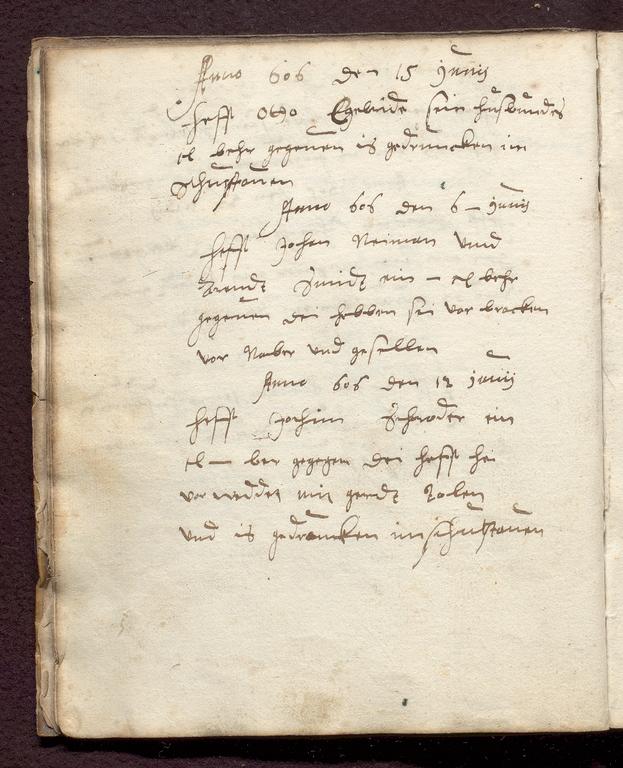 Anno 606 den 15 Junij
hefft Otto Egeride sein husbundes
tl behr gegeuen is gedruncken im
Schutstouen
Anno 606 den 6 – Junij
hefft Johan Neiman vnd
Arendt Smidt ein – tl behr
gegeuen den hebben sei vor brocken
vor Naber vnd gesellen
Anno 606 den 12 Junij
hefft Jochim Schroder ein
tl – ber gegegen dei hefft hei
vor weddet mit gerdt Tolen
vnd is gedruncken im schutstouen